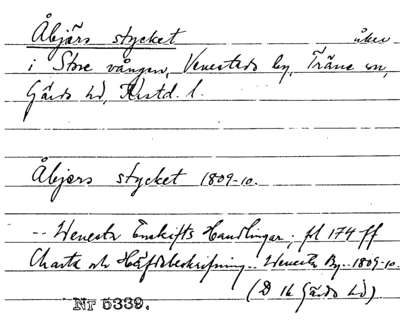 Åbjörs stycket åker
i Store vången, Venestads by, Träne sn,
Gärds hd, Krstd. l.
Åbjers stycket 1809-10.
-- Wenesta Enskifts Handlingar, fol 174 ff
Charta och Häfdebeskrifning .. Wenesta By .. 1809-10.
(D 16 Gärds hd)
Nr 5339.